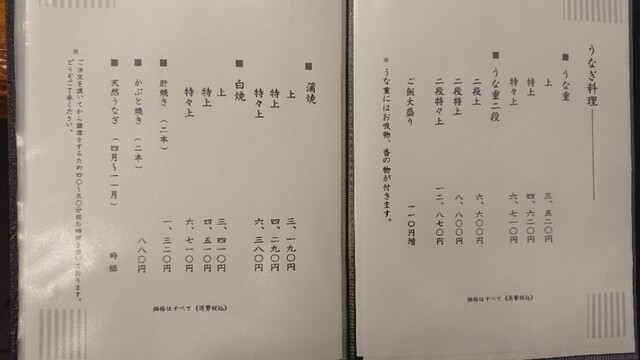 うなぎ料理
■ うな重
上 三、五二〇円
特上 四、六二〇円
特々上 六、七一〇円
■ うな重二段
二段上 六、六〇〇円
二段特上 八、八〇〇円
二段特々上 一二、八七〇円
ご飯大盛り 一一〇円増
※ うな重にはお吸物、香の物が付きます。
価格はすべて《消費税込》
■ 蒲焼
上 三、一九〇円
特上 四、二九〇円
特々上 六、三八〇円
■ 白焼
上 三、四一〇円
特上 四、五一〇円
特々上 六、七一〇円
■ 肝焼き(二本) 一、三二〇円
■ かぶと焼き(二本) 八八〇円
■ 天然うなぎ(四月〜一一月) 時価
※ ご注文を頂いてから調理をするため四〇〜五〇分程お時間を頂いております。
どうぞご了承ください。
価格はすべて《消費税込》